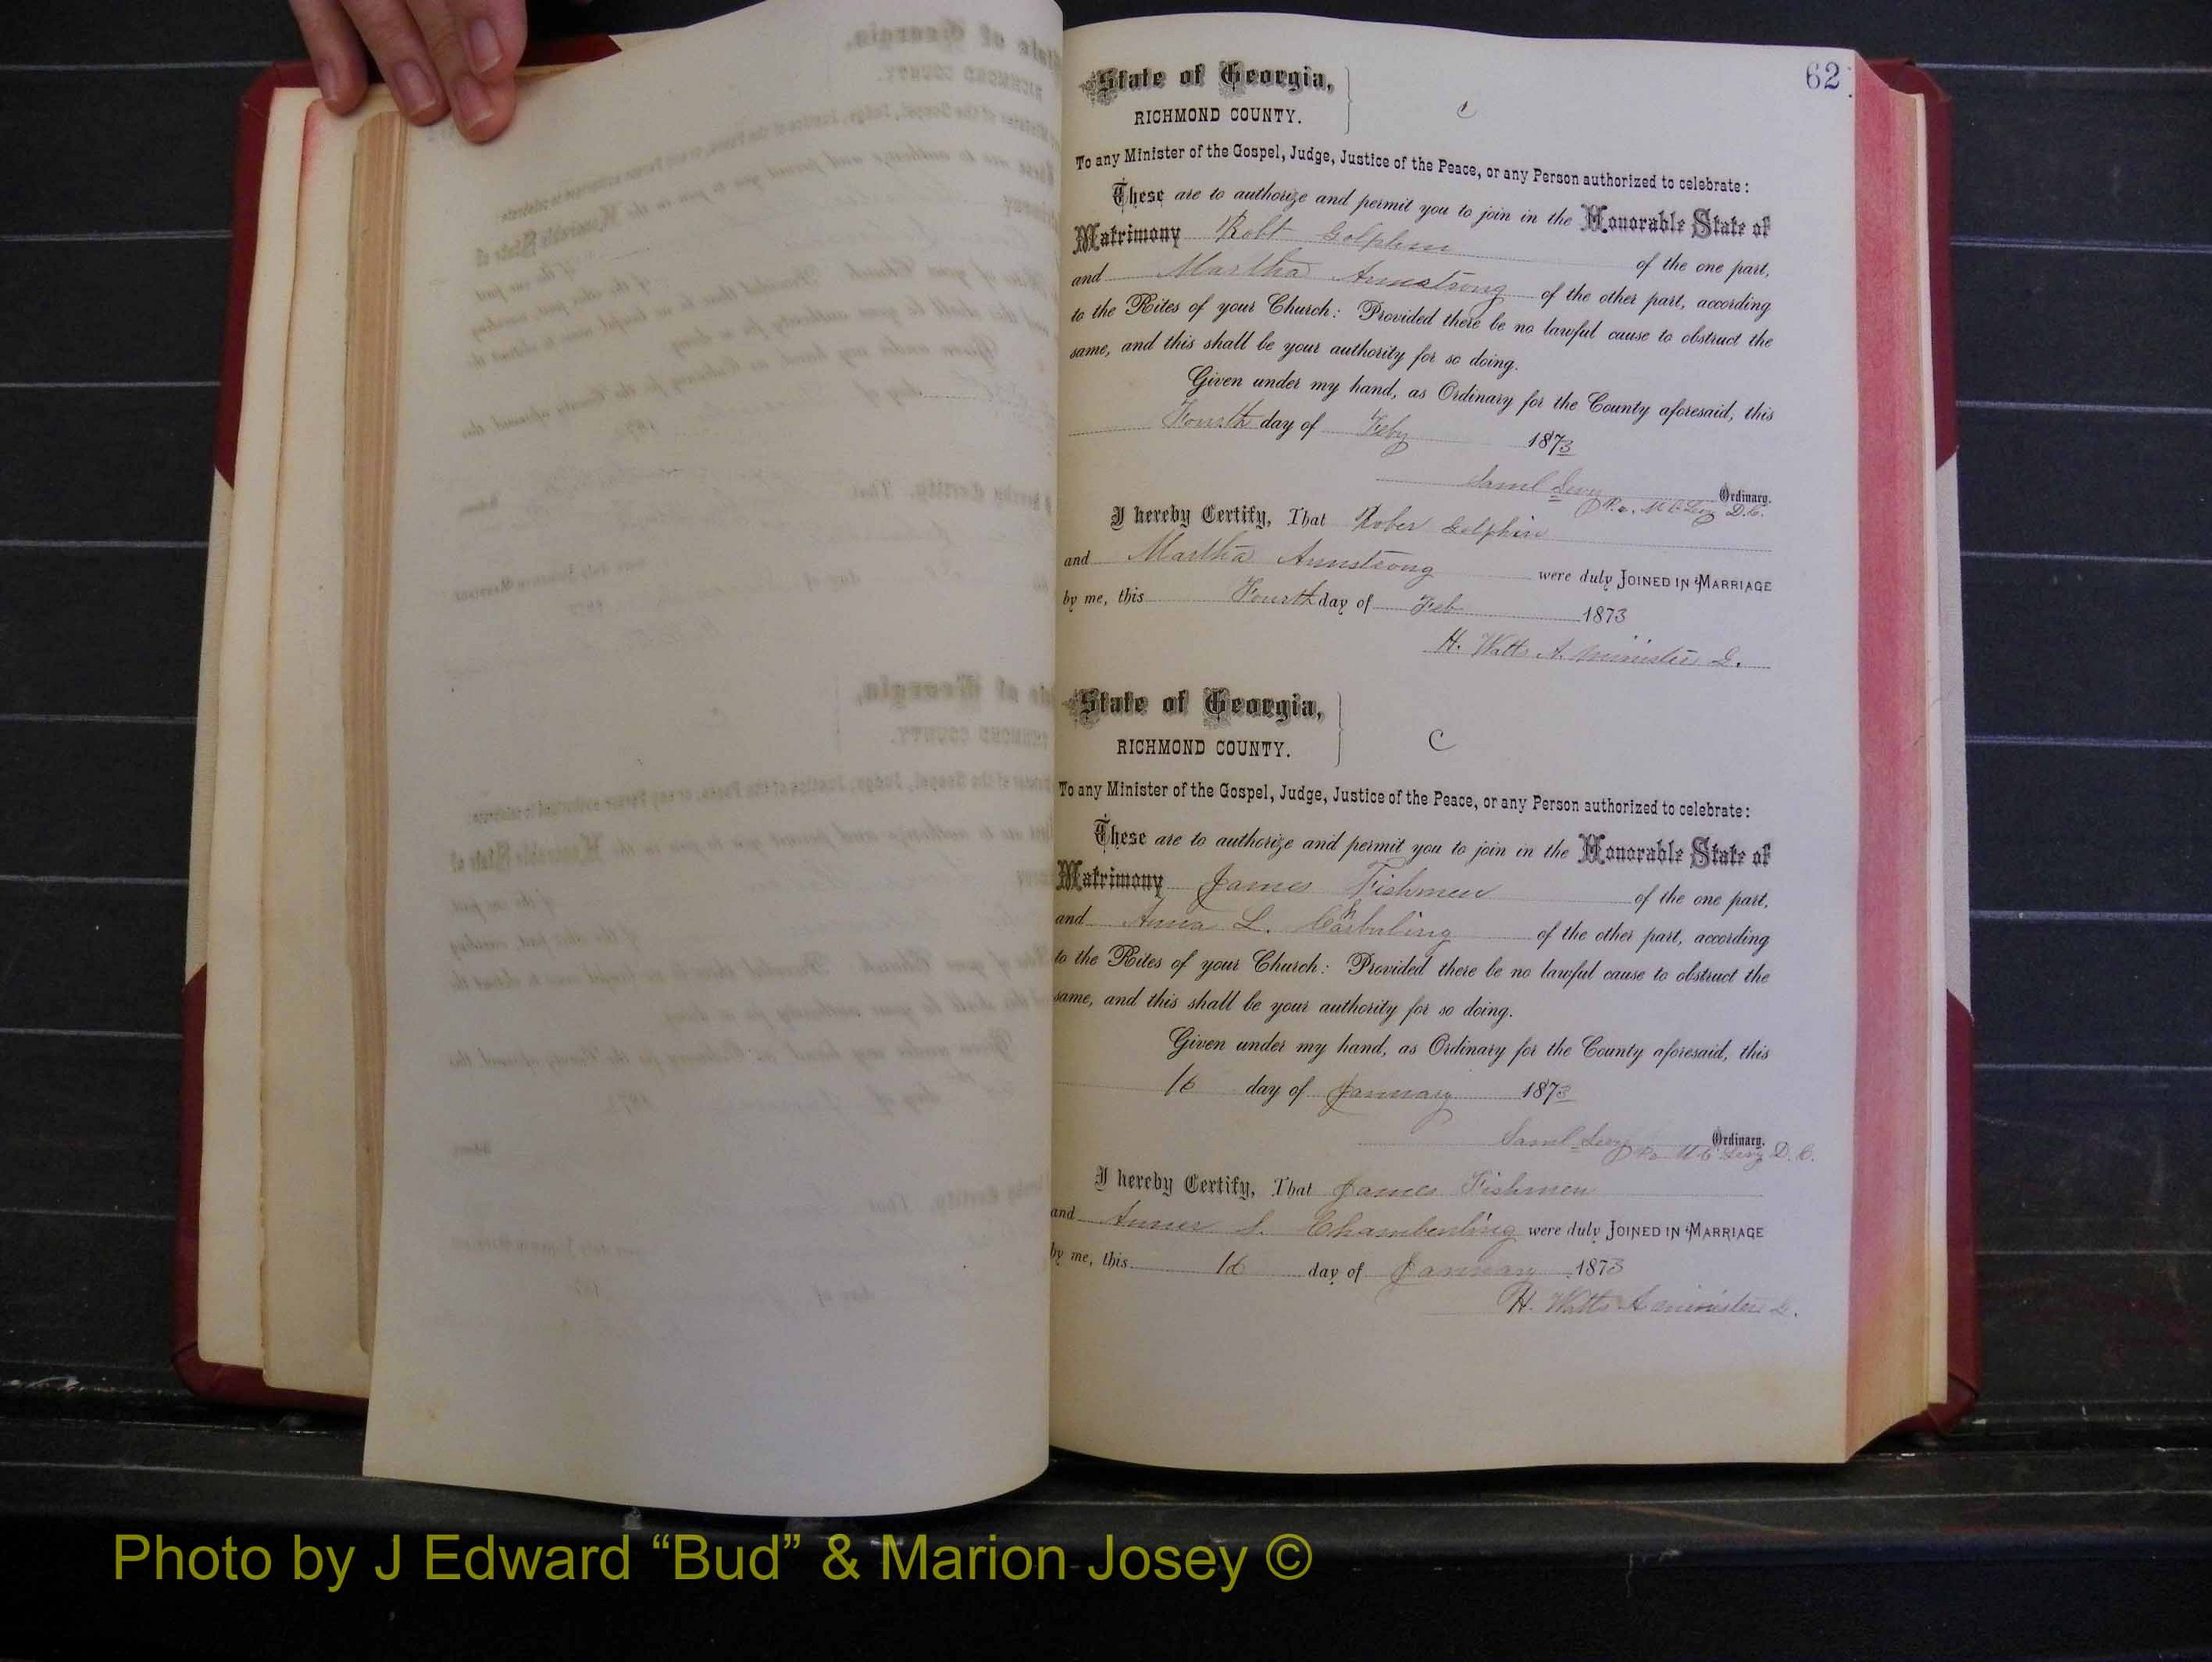 62
State of Georgia,
RICHMOND COUNTY.
C
To any Minister of the Gospel, Judge, Justice of the Peace, or any Person authorized to celebrate:
These are to authorize and permit you to join in the Honorable State of
Matrimony Robt Golphin of the one part,
and Martha Armstrong of the other part, according
to the Rites of your Church: Provided there be no lawful cause to obstruct the
same, and this shall be your authority for so doing.
Given under my hand, as Ordinary for the County aforesaid, this
Fourth day of Feby 1873
Saml Levy Ordinary.
Pr. M C Levy D.C.
I hereby Certify, That Rober Golphin
and Martha Armstrong were duly JOINED IN MARRIAGE
by me, this Fourth day of Feb 1873
H. Watts A. minister
State of Georgia,
RICHMOND COUNTY.
C
To any Minister of the Gospel, Judge, Justice of the Peace, or any Person authorized to celebrate:
These are to authorize and permit you to join in the Honorable State of
Matrimony James Fishmen of the one part,
and Anna L. of the other part, according
to the Rites of your Church: Provided there be no lawful cause to obstruct the
same, and this shall be your authority for so doing.
Given under my hand, as Ordinary for the County aforesaid, this
16 day of January 1873
Saml Levy Ordinary.
Pr M C Levy D. C.
I hereby Certify, That James Fishmen
and Anner Chamberling were duly JOINED IN MARRIAGE
by me, this 16 day of January 1873
H. Watts A minister
Photo by J Edward “Bud” & Marion Josey ©